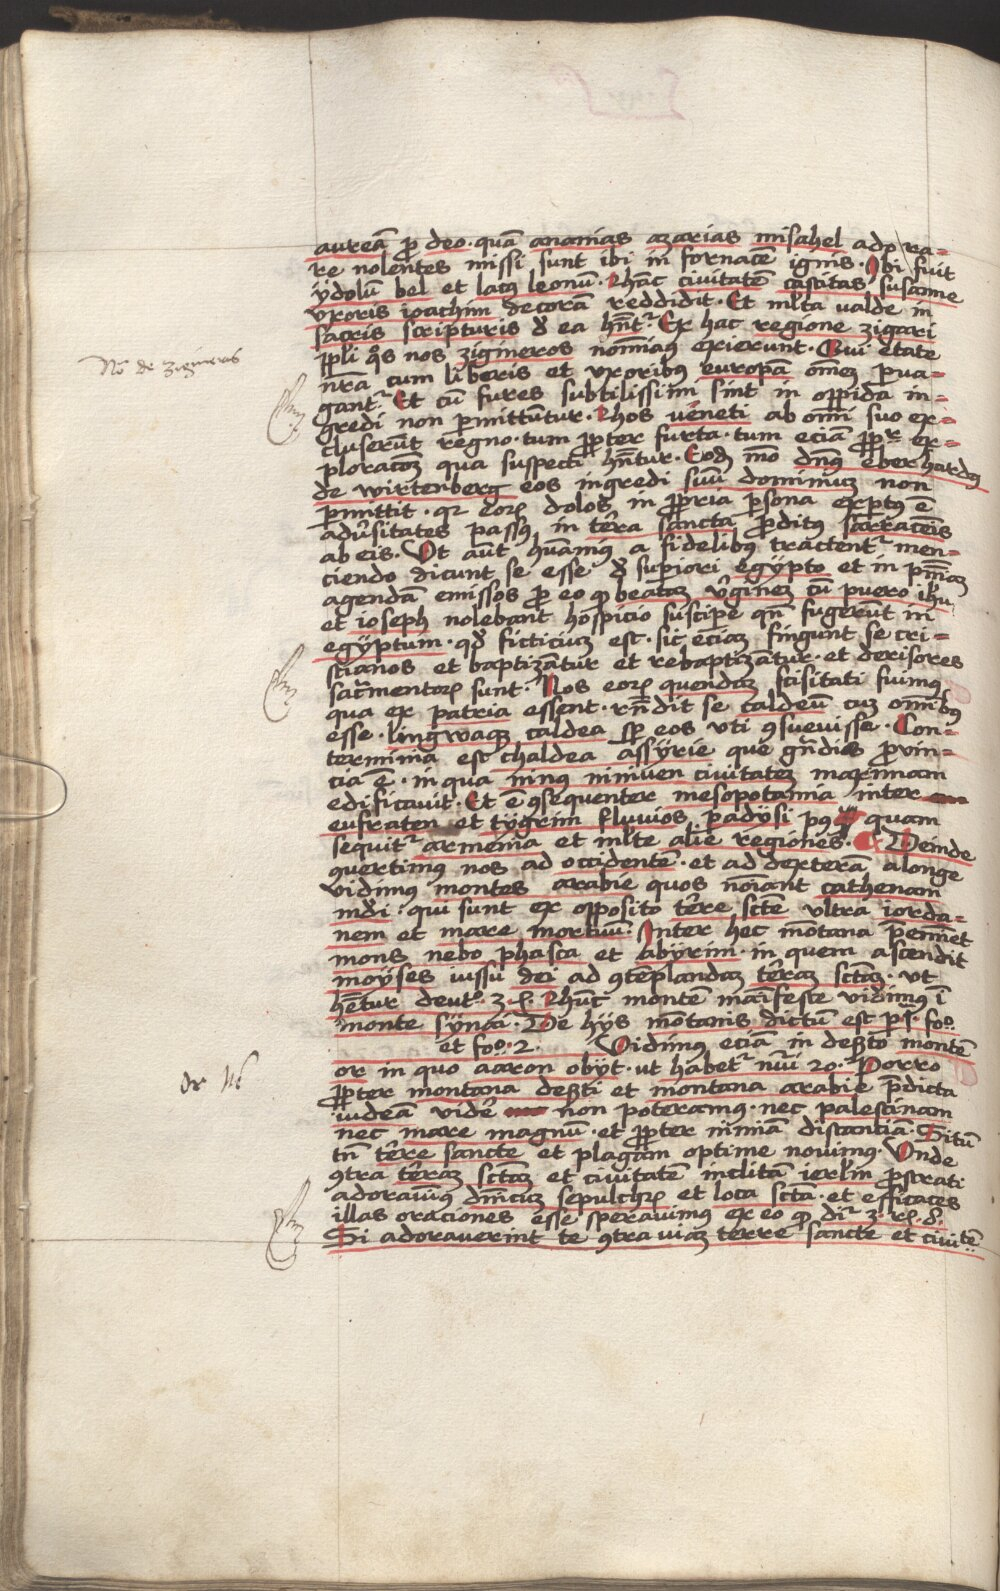 aureā ꝓ deo · quā ananias azarias misahel adora-
re nolentes missi sunt ibi in fornacē ignis · Ibi fuit
ydolū bel et lacꝯ leonū · Hāc civitatē castitas susanne
uxoris ioachim decorā reddidit · Et mlta valde in
sacris scripturis d̄ ea hn̄t · Ex hac regione zigari
ppl̄i qs̄ nos zigineros noīamꝯ exierunt · Qui etate
nrā cum liberis et uxoribꝯ europā om̄ez ꝑva-
Nōᵃ de zigineris
gant · Et cū fures subtilissimi sint in oppida in-
gredi non ꝑmittūtur · Hos veneti ab omī suo ex-
cluserūt regno · tum ꝓpter furta · tum eciā ꝓpr̄ ex-
ploracōz qua suspecti hn̄tur · Eodz mō dn̄ꝯ eberhardꝯ
de wirtenberg eos ingredi suū dominiuz non
ꝑmittit · qr eoꝝ dolos in ꝓpria ꝑsona exꝑtꝯ ē
adūsitates passꝯ in tēra sancta ꝓditꝯ sarracēis
ab eis · Ut aūt huāniꝯ a fidelibꝯ tractent men-
ciendo dicunt se esse d̄ supiori egypto et in pnīaz
agendā emissos ꝓ eo qꝫ beatam v̄ginez cū puero ihū
et ioseph nolebant hospicio suscipe qn̄ fugerūt in
egyptum · qd̄ ficticiuz est · sic eciaz fingunt se cri-
stianos et baptizātur et rebaptizātur · et derisores
sacmentoꝝ sunt · Nos eoꝝ quendaz scisitati fuimꝯ
qua ex patria essent · rn̄dit se caldeū cuz omībꝯ
esse · lingwaqꝫ caldea sꝑ eos uti ꝯsuevisse · Con-
terminia est chaldea assyrie que gn̄dis ꝓvin-
cia ē · in qua ninꝯ niniven civitatez maximam
edificavit · Et ē ꝯsequenter mesopotamia inter
eufraten et tygrim fluvios padysi pꝯ quam
sequit armenia et mlte alie regiones · Deinde
ꝯvertimꝯ nos ad occidentē · et ad dexterā a longe
vidimꝯ montes arabie quos noīant cathenam
mdi · qui sunt ex opposito tēre scte ultra iorda-
nem et mare mortuū · Inter hec mōtana p̄emīet
mons nebo phasca et abyrim · in quem ascendit
moyses iussu dei ad ꝯtēplandaz tēraz sctaz · ut
hētur deut° · 3 · Huc montē manifeste vidimꝯ ī
monte synai · De hys mōtanis dictū est fo°
et fo° · 2 · Vidimꝯ eciā in deserto montē
or in quo aaron obyt · ut habet nūi 20 · Porro
ꝓpter montana deserti et montana arabie p̄dicta
iudeā vidē non poteramꝯ · nec palestinam
nec mare magnū · et ꝓpter nimiā distanciā · Situ
tn̄ tēre sancte et plagam optime novimꝯ · Unde
ꝯtra tēraz sctaz et civitatē inclitā ierlm̄ ꝓstrati
adoravimꝯ dnīcuz sepulchrū et loca sctā · et efficaces
illas oraciones esse speravimꝯ ex eo qꝫ di 3 · rꝫ · 8 ·
Si adoraverint te ꝯtra viaz terre sancte et civitē